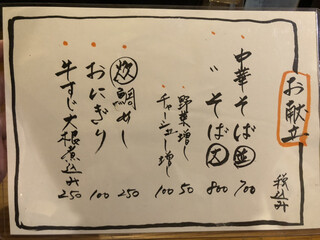 お献立
税込み
中華そば 並 700
〃 そば 大 800
野菜増し 50
チャーシュー増し 100
炊 鯛めし 250
おにぎり 100
牛すじ大根煮込み 250